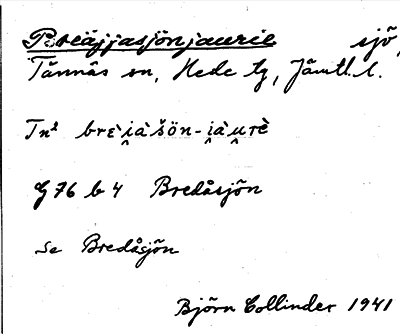 Breäjjasjönjaurie sjö,
Tännäs sn, Hede tg, Jämtl. l.
Tn² brɛ̀i̯à šön-i̯àu̯rè
G 76 b 4 Bredåsjön
se Bredåsjön
Björn Collinder 1941